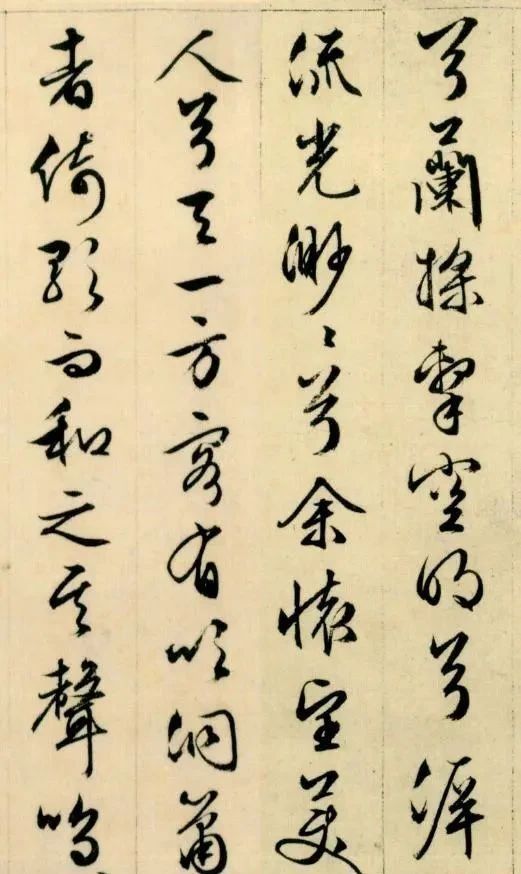 兮蘭槳擊空明兮泝
流光渺々兮余懷望美
人兮天一方客有吹洞簫
者倚歌而和之其聲嗚